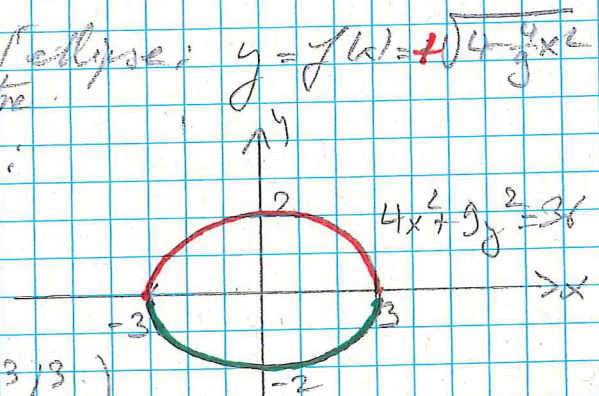 ellipse: y = f(x) = +√4-4/9x²
y
2
4x²+9y²=36
x
-3
3
-2